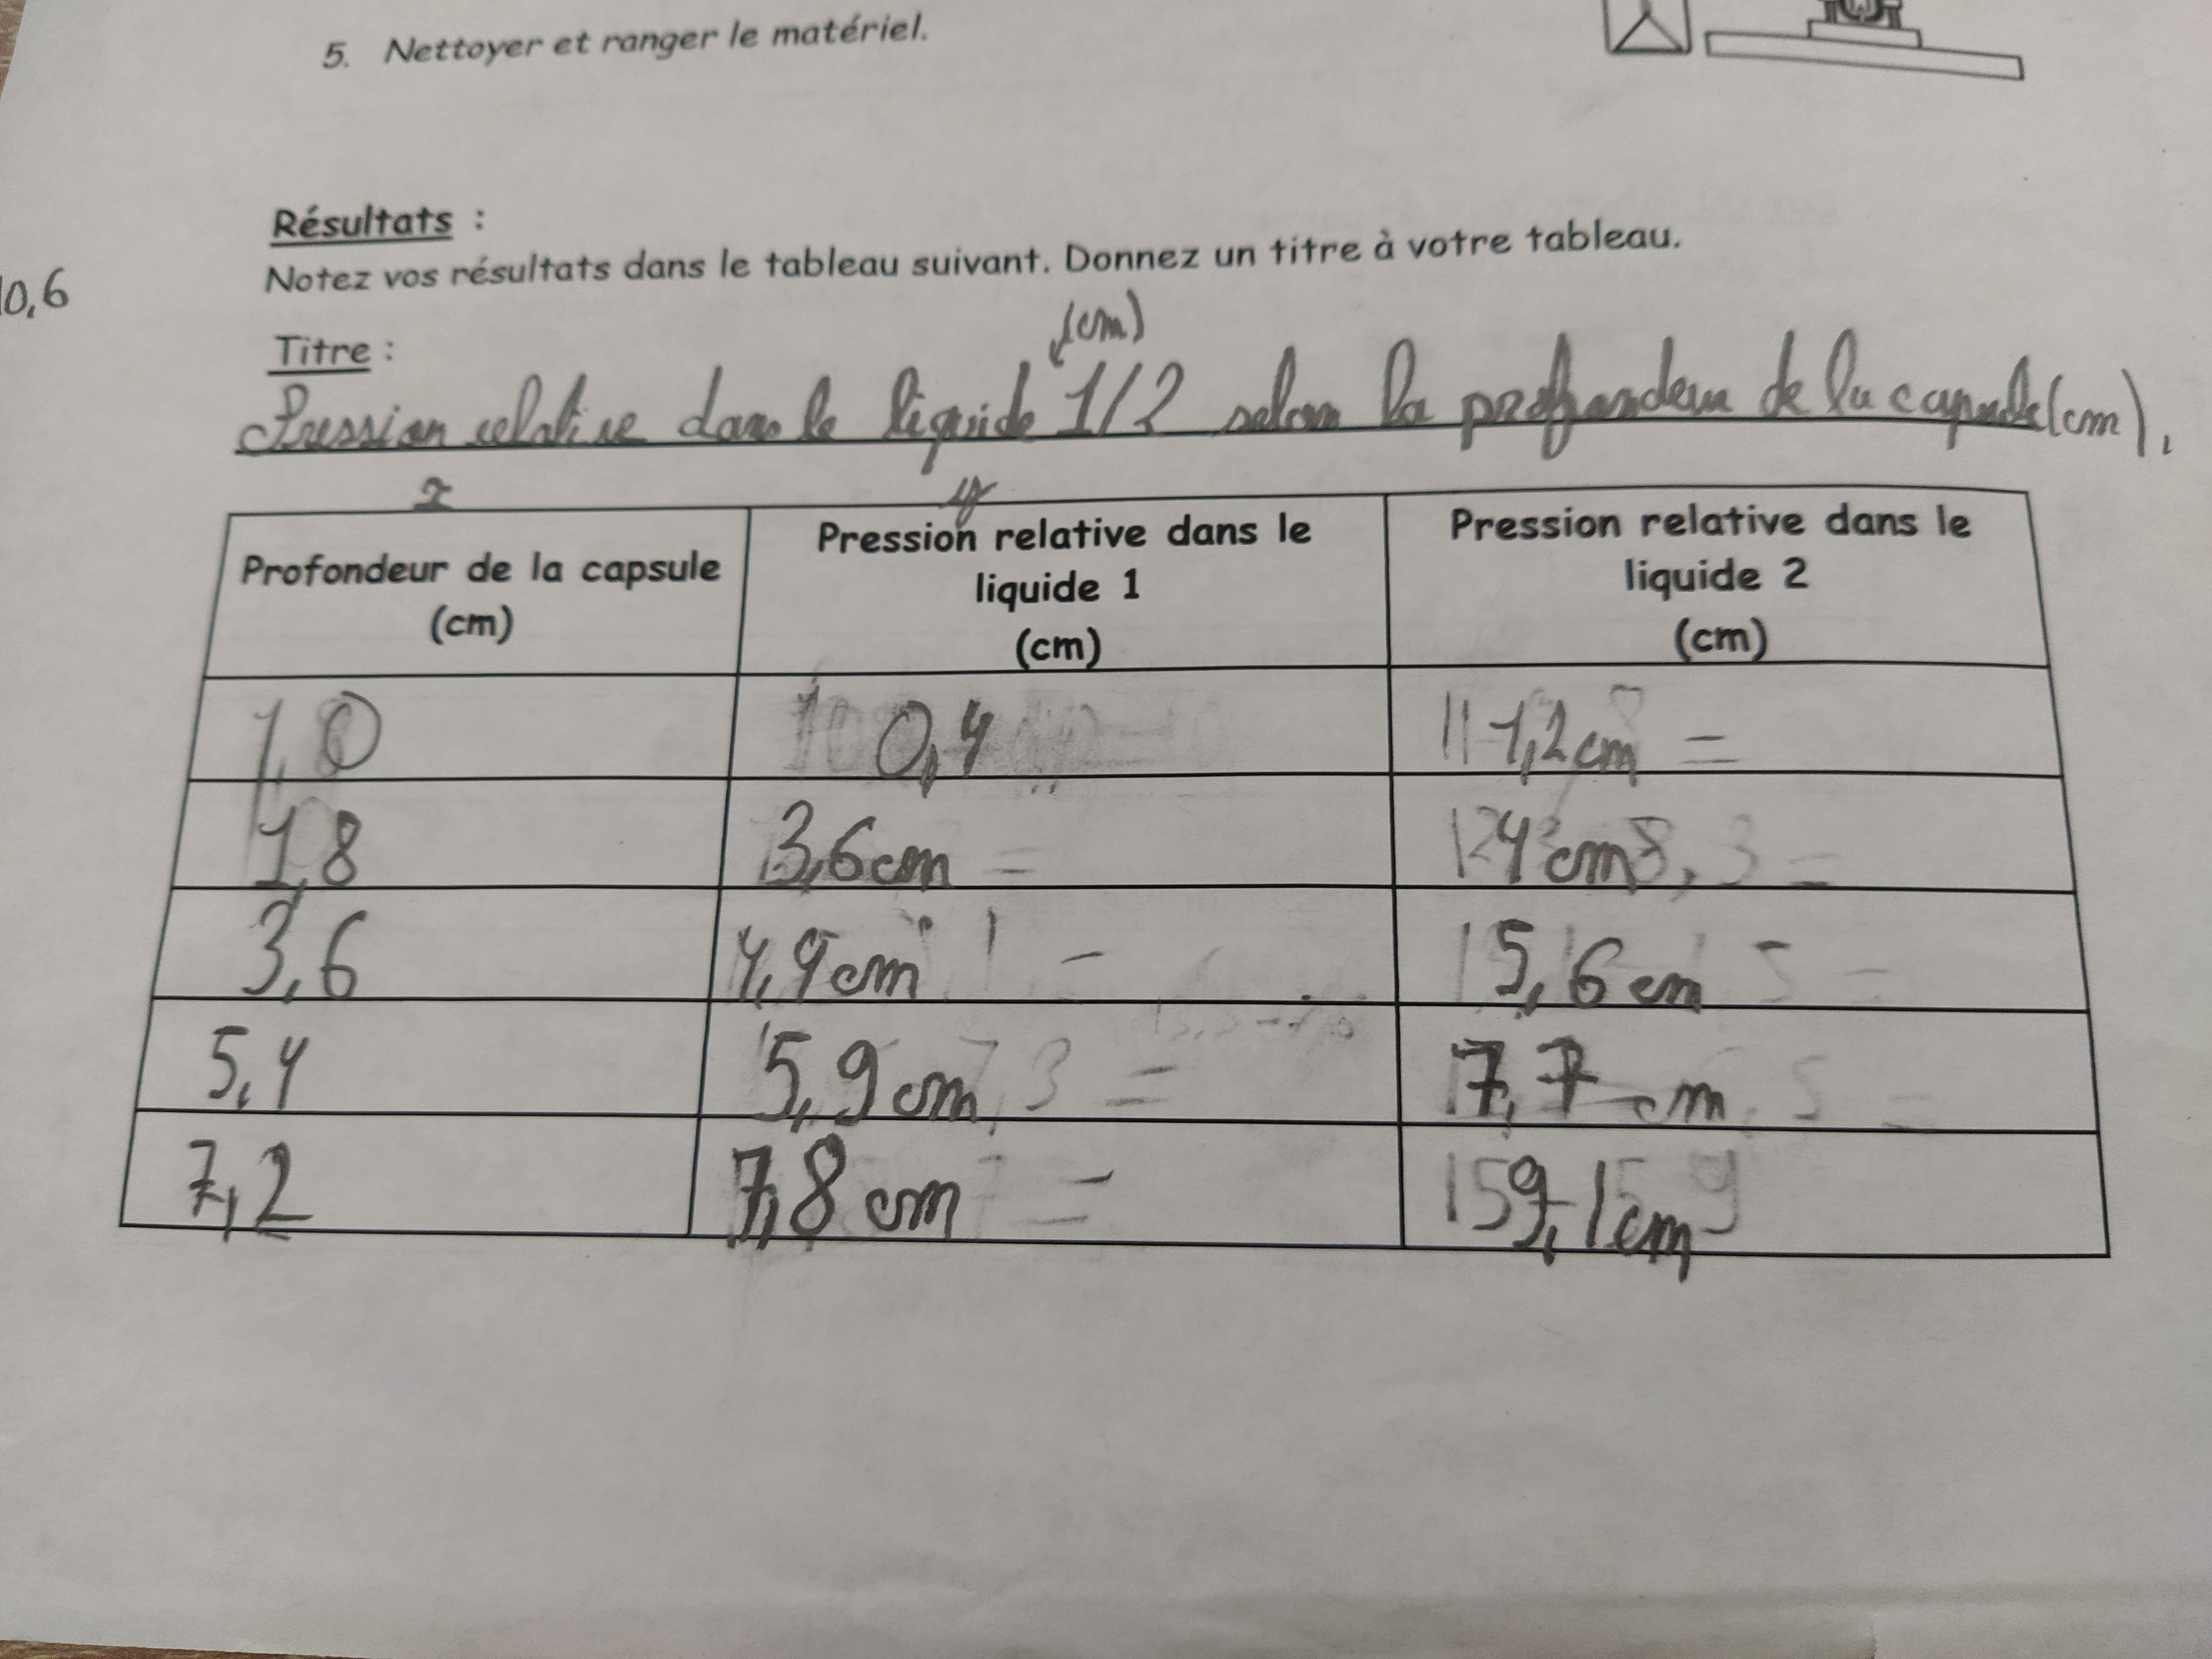 5. Nettoyer et ranger le matériel.
Résultats :
Notez vos résultats dans le tableau suivant. Donnez un titre à votre tableau.
10,6
(cm)
Titre :
Pression relative dans le liquide 1/2 selon la profondeur de la capsule (cm).
x y
Profondeur de la capsule (cm) Pression relative dans le liquide 1 (cm) Pression relative dans le liquide 2 (cm)
1,0 0,4 1,2cm =
1,8 3,6cm = 4cm
3,6 4,9cm 5,6cm
5,4 5,9cm = 7,7cm
7,2 7,8cm = 9,1cm